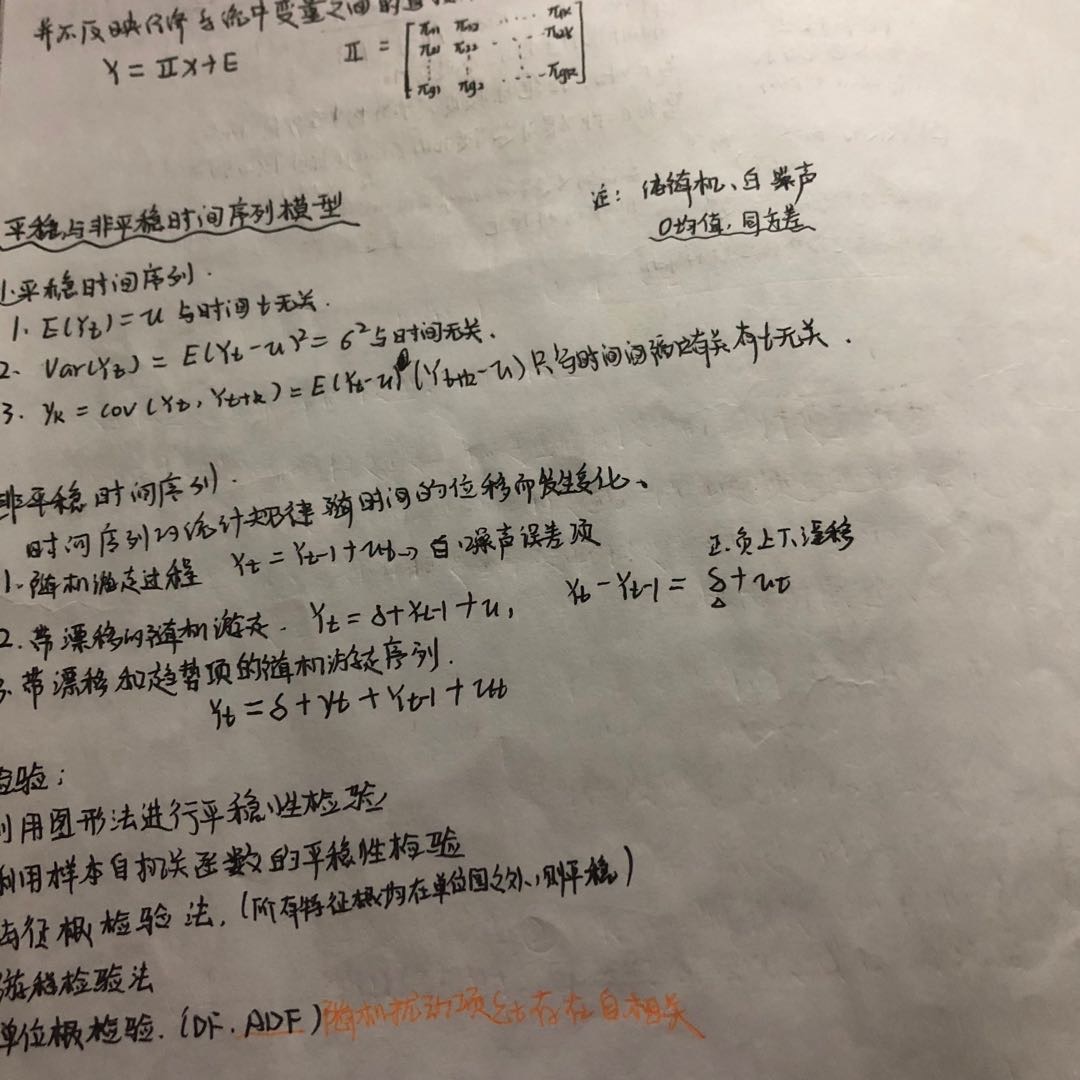 并不反映经济系统中变量之间的直
Y = ΠX+E
Π = [π11 π12 ····· π1k
π21 π22 ····· π2k
πg1 πg2 ····· πgk]
注: 纯随机、白噪声
0均值, 同方差
平稳与非平稳时间序列模型
1.平稳时间序列.
1. E(Yt)=u 与时间t无关.
2. Var(Yt) = E(Yt-u)²= 6²与时间无关.
3. γk = cov(Yt, Yt+k)=E(Yt-u)(Yt+k-u) 只与时间间隔有关 与t无关.
非平稳时间序列.
时间序列的统计规律随时间的位移而发生变化、
1.随机游走过程 Yt = Yt-1+ut→白噪声误差项
正.负上下漂移
2.带漂移的随机游走. Yt = δ+Yt-1+u, Yt-Yt-1 = δ+ut
3.带漂移和趋势项的随机游走序列.
Yt = δ+γt+Yt-1+ut
检验:
利用图形法进行平稳性检验
利用样本自相关函数的平稳性检验
特征根检验法. (所有特征根均在单位圆之外,则平稳)
游程检验法
单位根检验. (DF. ADF) 随机扰动项εt存在自相关